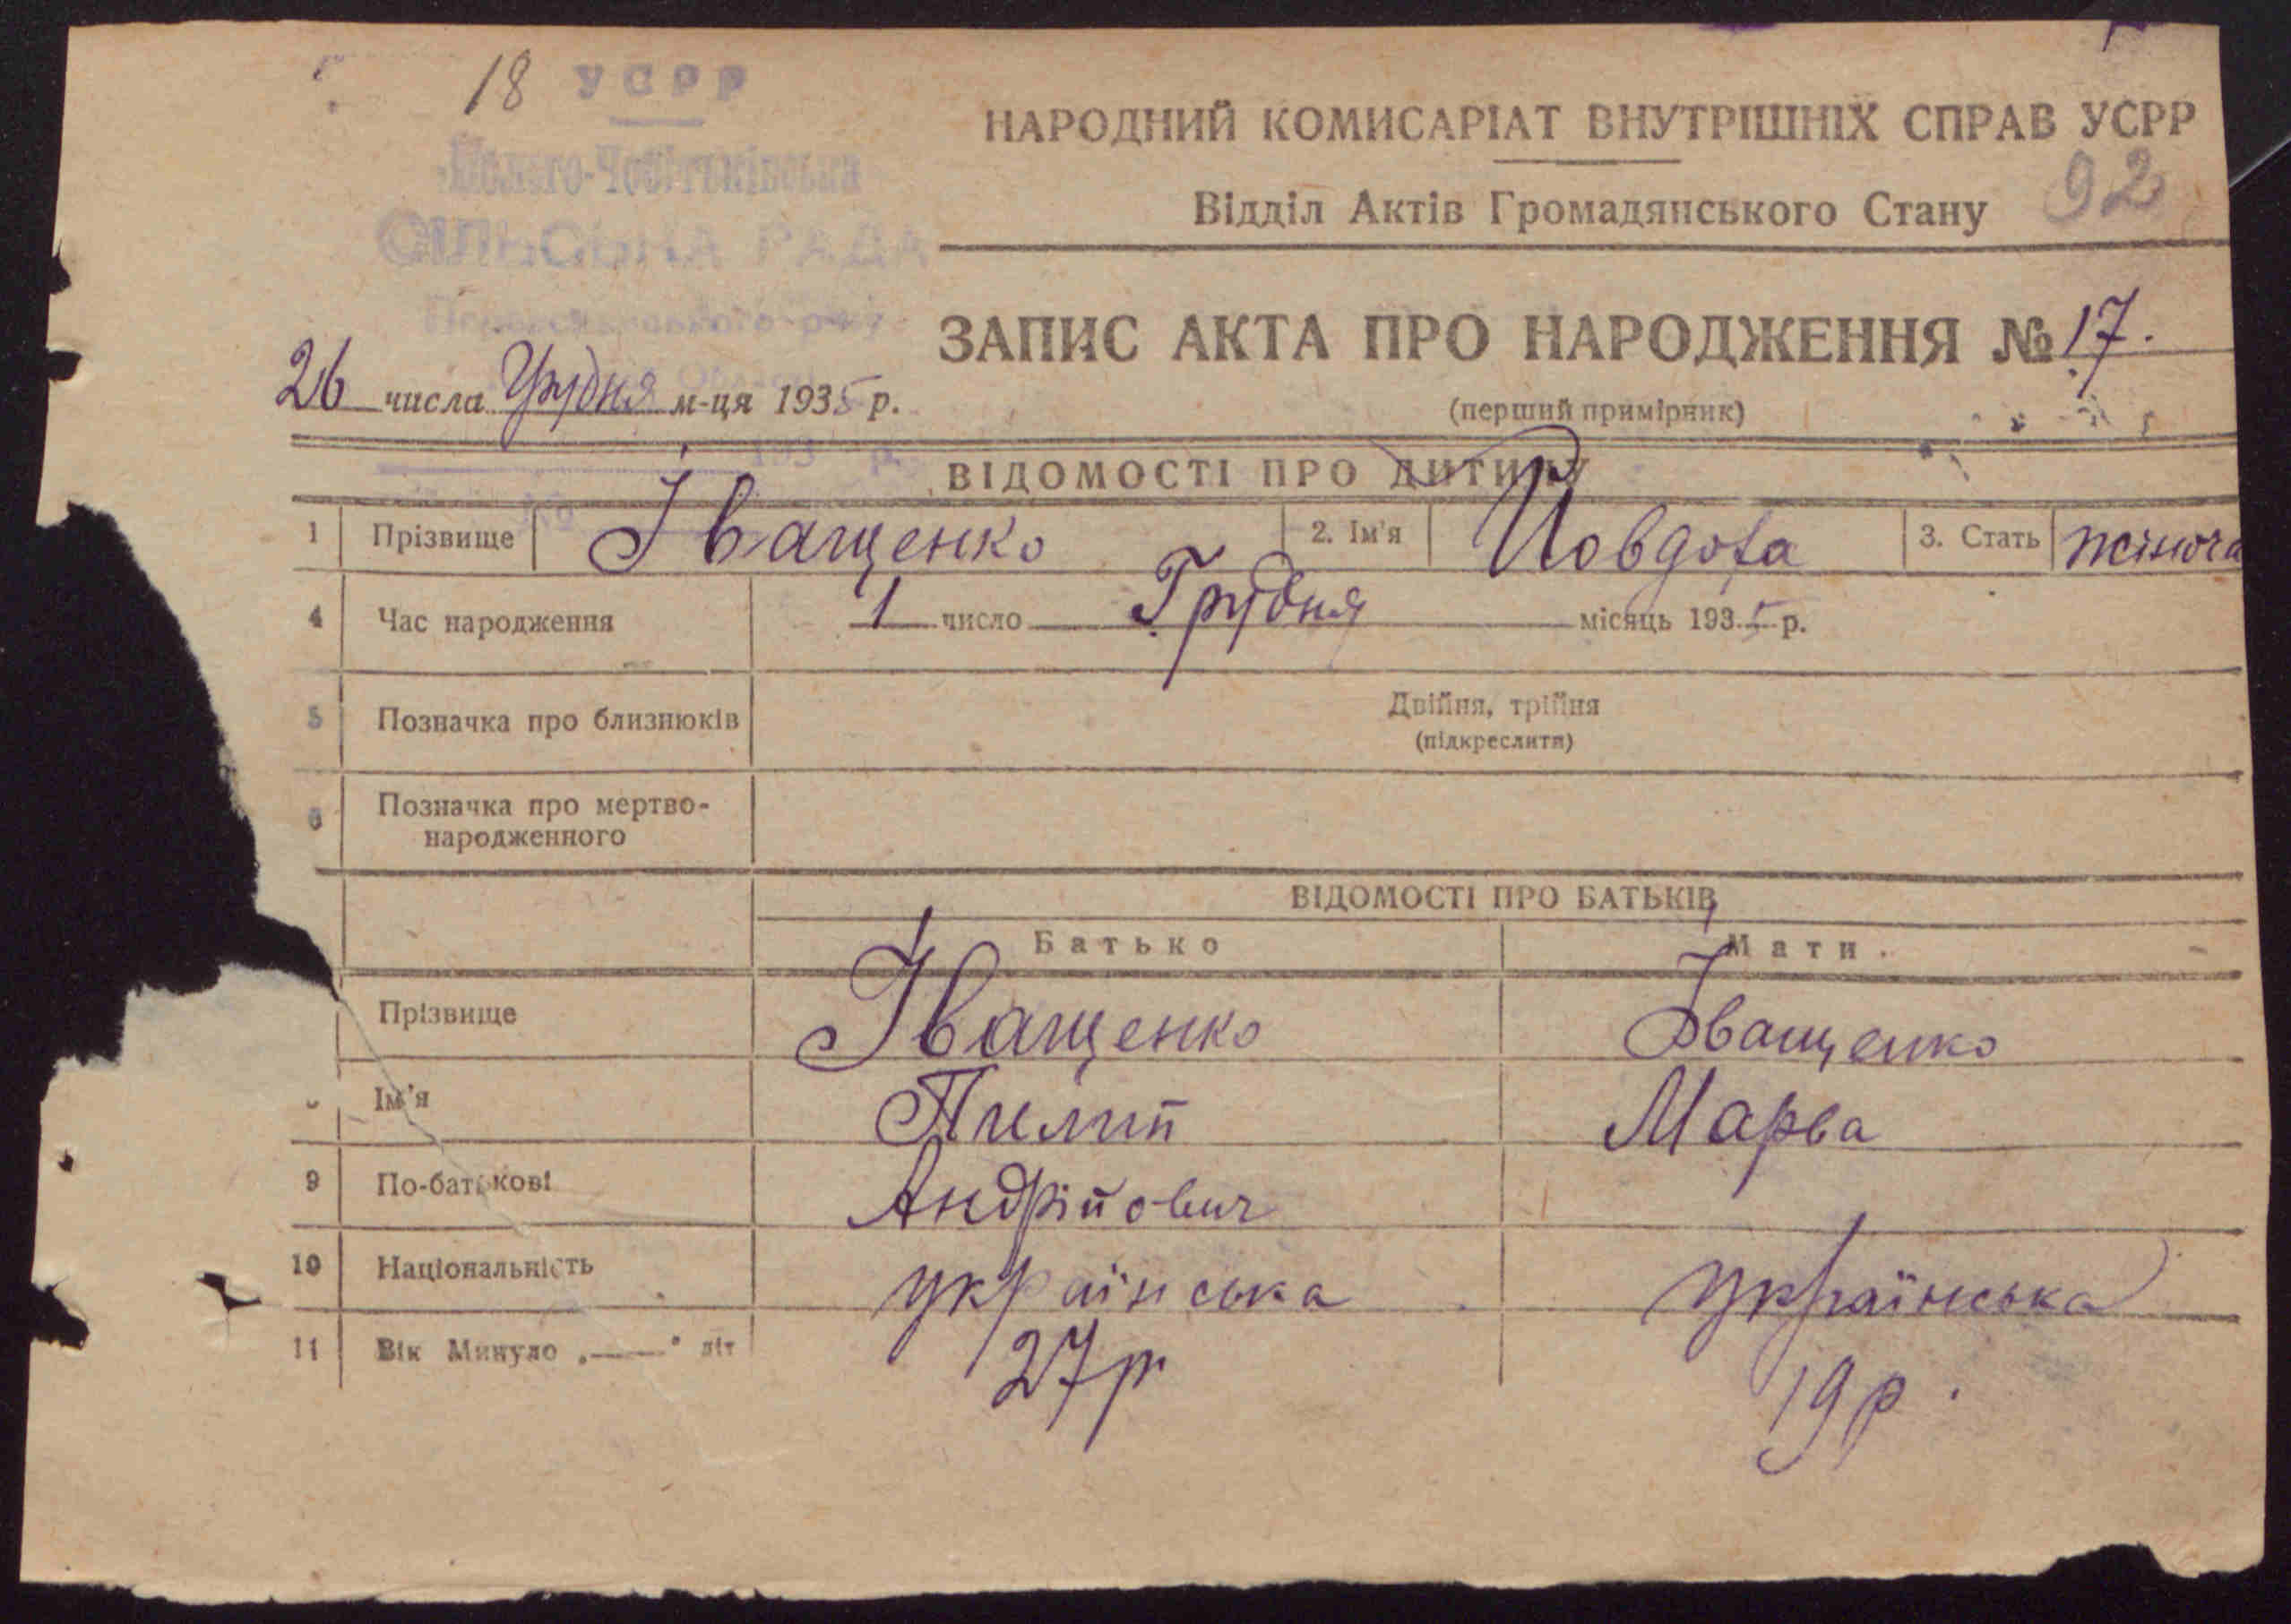 18 УСРР
СІЛЬСЬКА РАДА
НАРОДНИЙ КОМИСАРІАТ ВНУТРІШНІХ СПРАВ УСРР
92
Відділ Актів Громадянського Стану
ЗАПИС АКТА ПРО НАРОДЖЕННЯ № 17.
(перший примірник)
26 числа Грудня м-ця 1935 р.
193 р.
ВІДОМОСТІ ПРО ДИТИНУ
1 Прізвище Іващенко 2. Ім'я Йовдоха 3. Стать жіноча
4 Час народження 1 число Грудня місяць 1935 р.
5 Позначка про близнюків Двійня, трійня
(підкреслити)
6 Позначка про мертво-
народженного
ВІДОМОСТІ ПРО БАТЬКІВ
Батько Мати
Прізвище Іващенко Іващенко
Ім'я Пилип Марва
9 По-батькові Андрійович
10 Національність українська українська
11 Вік Минуло „—" літ 27 р 19 р.